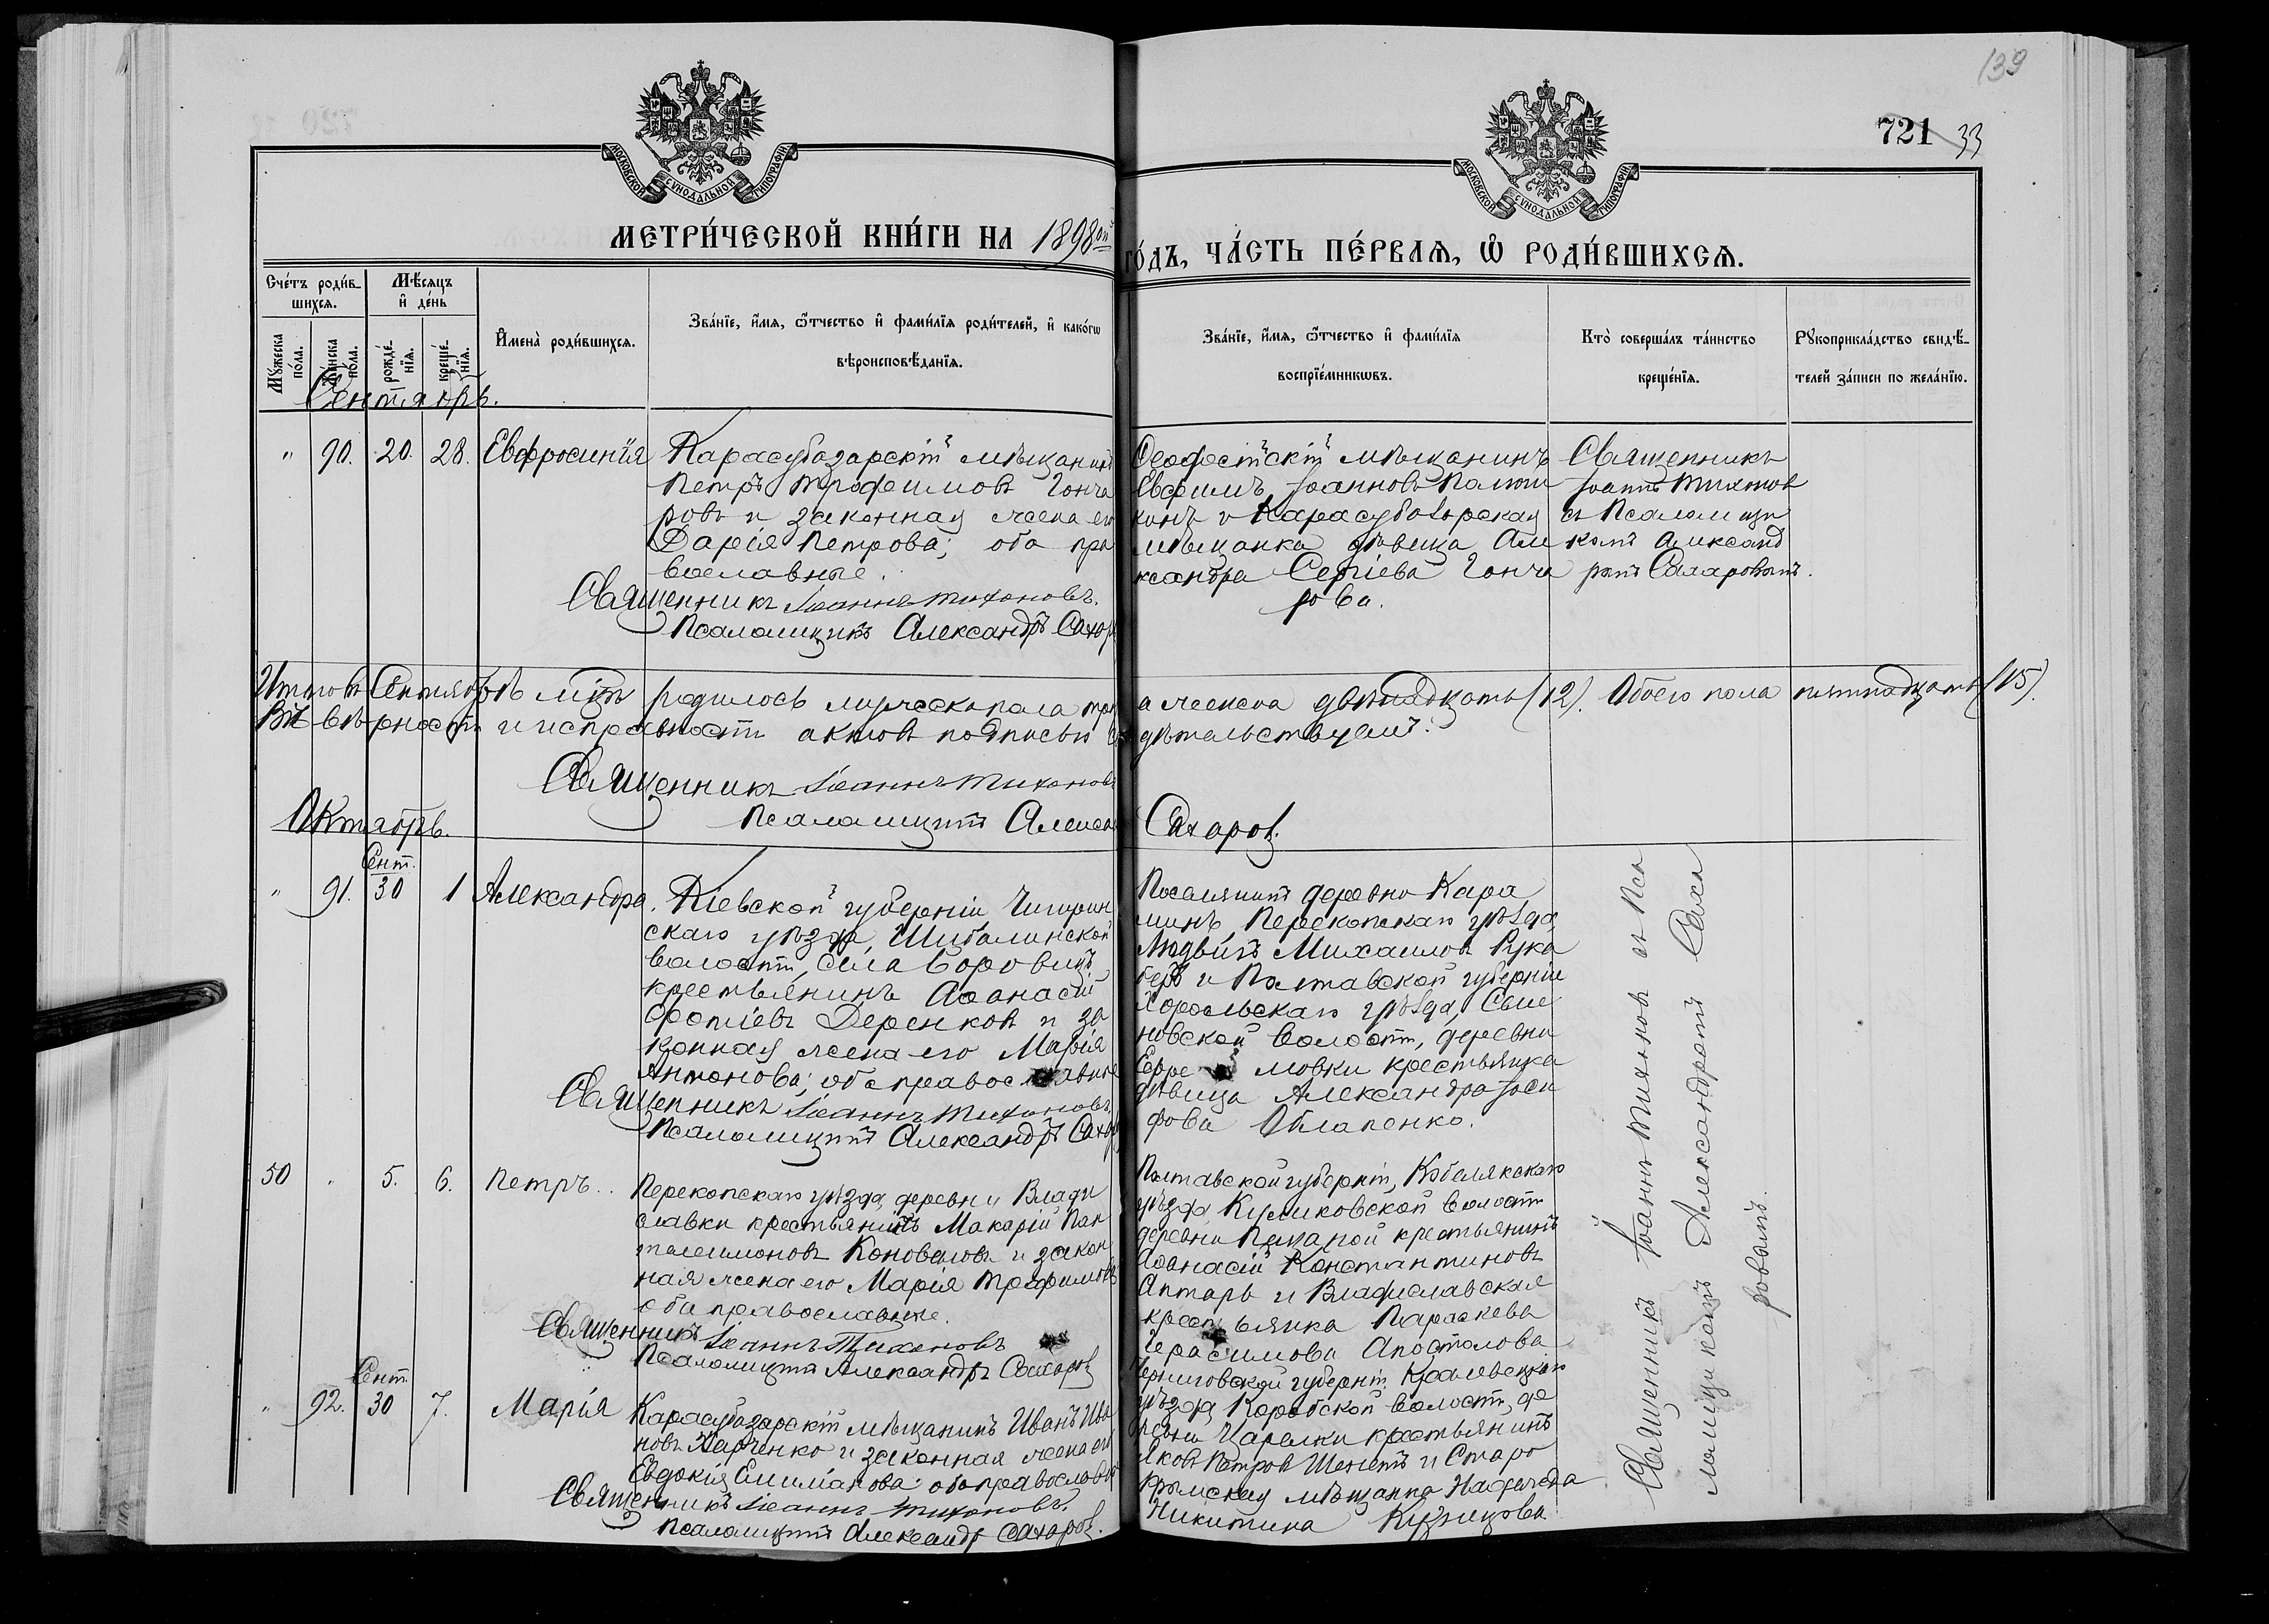 139
721 33
МОСКОВСКОЙ СѴНОДАЛЬНОЙ ТИПОГРАФІИ
МОСКОВСКОЙ СѴНОДАЛЬНОЙ ТИПОГРАФІИ
МЕТРИ́ЧЕСКОЙ КНИ́ГИ НА 1898ой
ГО́ДЪ, ЧА́СТЬ ПЕ́РВАѦ, Ѡ҆ РОДИ́ВШИХСѦ.
Сче́тъ роди́в-
шихсѧ.
Мѣ́сѧцъ
и҆ де́нь
Му́жеска по́ла.
Же́нска по́ла.
рожде́-нїѧ.
креще́-нїѧ.
И҆мена̀ роди́вшихсѧ.
Зва́нїе, и҆́мѧ, ѻ҆́тчество и҆ фами́лїѧ роди́телей, и҆ како́гѡ
вѣроисповѣ́данїѧ.
Зва́нїе, и҆́мѧ, ѻ҆́тчество и҆ фами́лїѧ
воспрїе́мникѡвъ.
Кто̀ соверша́лъ та́инство
креще́нїѧ.
Рꙋкоприкла́дство свидѣ́-
телей за́писи по жела́нїю.
Сентябрь.
" 90. 20. 28. Евфросинія
Карасубазарскій мѣщанинъ
Петръ Трофимовъ Гонча
ровъ и законная жена его
Дарія Петрова; оба пра
вославные.
Священникъ Іоаннъ Тихоновъ.
Псаломщикъ Александръ Сахар
Ѳеодосійскій мѣщанинъ
Евфимъ Іоанновъ
кинъ и Карасубазарская
мѣщанка дѣвица Але
ксандра Сергіева Гонча
рова.
Священникъ
Іоаннъ Тихонов
съ Псаломщи
комъ Александ
ромъ Сахаровымъ.
Итого въ Сентябрѣ мѣсяцѣ родилось мужеска пола три
а женска двѣнадцать (12). Обоего пола пятнадцать (15).
вѣрности и исправности актовъ подписью сви
дѣтельствуемъ:
Священникъ Іоаннъ Тихоновъ
Псаломщикъ Алекса
Сахаров.
Октябрь.
Сент.
" 91. 30 1 Александра.
Кіевской губерніи, Чигирин
скаго уѣзда, Шабалинской
волости, села Боровицъ
крестьянинъ Аѳанасій
Фотіевъ Деренковъ и за
конная жена его Марія
Антонова; оба православные
Священникъ Іоаннъ Тихоновъ
Псаломщикъ Александръ Сахар
Поселянинъ деревни Кара
минъ Перекопскаго уѣзда
Людвигъ Михаиловъ Рука
беръ и Полтавской губерніи
Хорольскаго уѣзда,
новской волости, деревни
мовки крестьянка
дѣвица Александра Іоси
фова
50 " 5. 6. Петръ.
Перекопскаго уѣзда, деревни Влади
славки крестьянинъ Макарій Пан
телеимоновъ Коноваловъ и закон
ная жена его Марія Трофимова
оба православные.
Священникъ
Іоаннъ Тихоновъ
Псаломщикъ Александръ Сахаров
Полтавской губерніи, Кобелякскаго
уѣзда Куликовской волости
деревни крестьянинъ
Аѳанасій Константиновъ
и Владиславская
крестьянка Параскева
Герасимова Апостолова
Сент.
" 92. 30 7. Марія
Карасубазарскій мѣщанинъ Иванъ Ива
новъ Харченко и законная жена его
Евдокія Емиліанова; оба православные
Священникъ Іоаннъ Тихоновъ.
Псаломщикъ Александр Сахаров.
Черниговской губерніи Кролевецкаго
уѣзда Коропской волости, де
ревни Царевки крестьянинъ
Яковъ Петровъ и Старо
крымская мѣщанка Надежда
Никитина Кузнецова
Священникъ Іоаннъ Тихонов съ Пса
ломщикомъ Александромъ Саха
ровымъ.